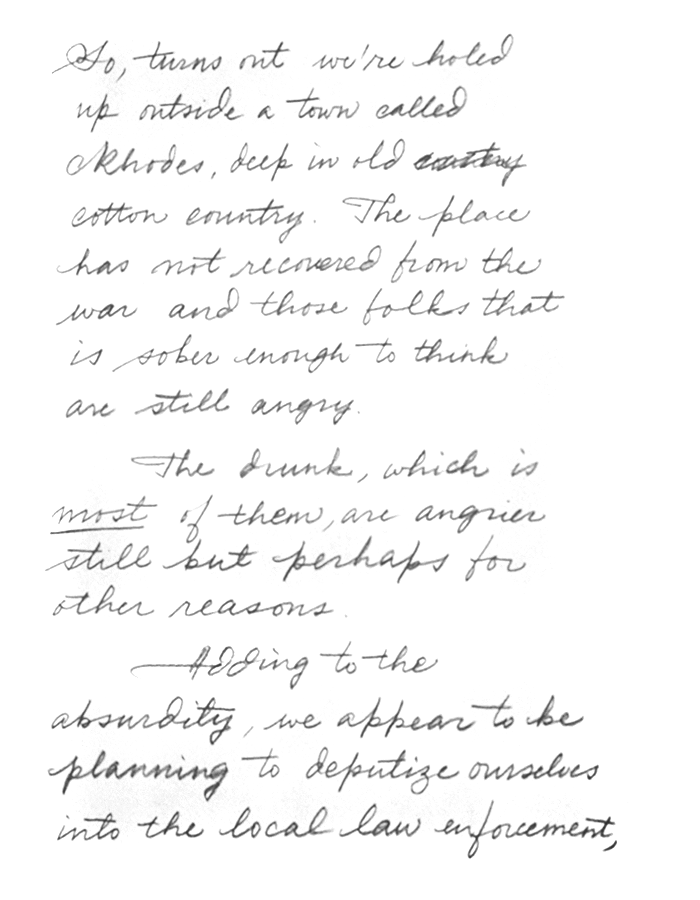 So, turns out we're holed
up outside a town called
Rhodes, deep in old country
cotton country. The place
has not recovered from the
war and those folks that
is sober enough to think
are still angry.
The drunk, which is
most of them, are angrier
still but perhaps for
other reasons.
Adding to the
absurdity, we appear to be
planning to deputize ourselves
into the local law enforcement,